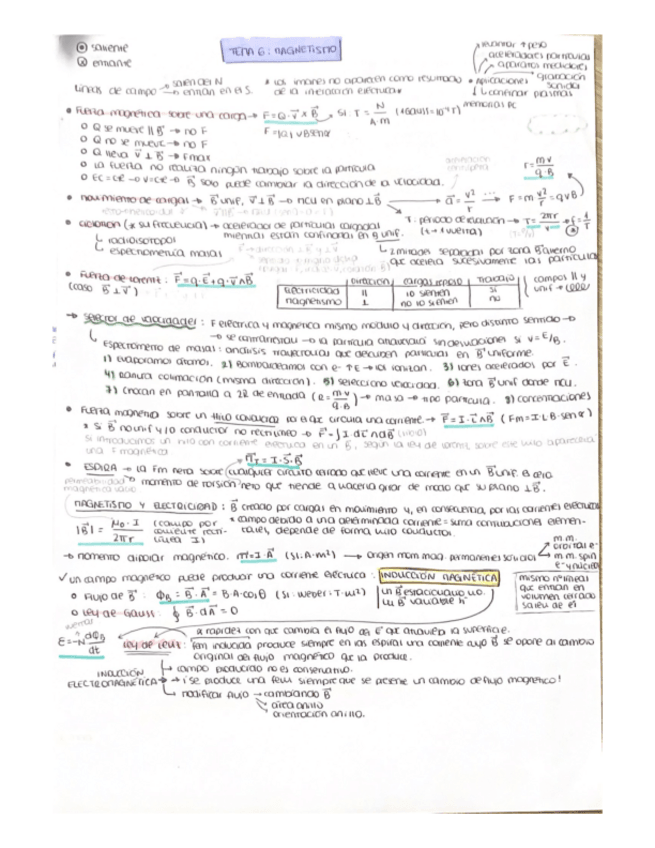 ⊙ saliente
⊗ entrante
TEMA 6: MAGNETISMO
levantar ↑ peso
aceleradores partículas
aparatos medidores
grabación sonido
Aplicaciones
confinar plasmas
memorias PC
Líneas de campo → salen del N
→ entran en el S.
* los imanes no aparecen como resultado de la interacción eléctrica *
• Fuerza magnética sobre una carga → F = Q·v × B Si: T = N / A·m (1 Gauss = 10⁻⁴ T)
F = |q| v B senα
o Q se mueve || B → no F
o Q no se mueve → no F
o Q lleva v ⊥ B → Fmax
o La fuerza no realiza ningún trabajo sobre la partícula
o EC = cte → v = cte → B solo puede cambiar la dirección de la velocidad.
r = mv / q·B
• Movimiento de cargas → B unif, v ⊥ B → mcu en plano ⊥ B → a = v² / r ... F = m v² / r = qvB
T: periodo de rotación → T = 2πr / v → f = 1 / T
• Ciclotrón (* su frecuencia) → acelerador de partículas cargadas mientras están confinadas en B unif.
radioisótopos
espectrometría masas
2 mitades separadas por zona B alterno que acelera sucesivamente las partículas
• Fuerza de Lorentz: F = q·E + q·v∧B
(caso B ⊥ v)
Dirección | cargas reposo | Trabajo
electricidad | || | lo sienten | sí
magnetismo | ⊥ | no lo sienten | no
campos || y unif →
→ Selector de velocidades: F eléctrica y magnética mismo módulo y dirección, pero distinto sentido →
→ se contrarrestan → la partícula atravesará sin desviaciones si v = E/B.
Espectrómetro de masas: análisis trayectorias que describen partículas en B uniforme.
1) Evaporamos átomos. 2) Bombardeamos con e⁻ ↑E → los ionizan. 3) Iones acelerados por E.
4) Ranura colimación (misma dirección). 5) selecciono velocidad. 6) zona B unif donde mcu.
7) Chocan en pantalla a 2R de entrada (R = mv / q·B) → masa → tipo partícula. 8) concentraciones
• Fuerza magnética sobre un hilo conductor por el que circula una corriente → F = I·L∧B (Fm = I·L·B·senα)
* Si B no unif y/o conductor no rectilíneo → F = ∫I dL∧dB
Si introducimos un hilo con corriente eléctrica en un B, según la ley de Lorentz, sobre este hilo aparecería una F magnética
m = I·S·B
• ESPIRA → la Fm neta sobre cualquier circuito cerrado que lleve una corriente en un B unif es cero
momento de torsión neto que tiende a hacerla girar de modo que su plano ⊥ B.
MAGNETISMO Y ELECTRICIDAD: B creado por cargas en movimiento y, en consecuencia, por las corrientes eléctricas
|B| = μ₀·I / 2πr (campo por corriente rectilínea I)
* campo debido a una determinada corriente = suma contribuciones elementales, depende de forma hilo conductor.
→ Momento dipolar magnético. m = I·A (SI: A·m²) → origen mom mag. permanentes sólidos
m.m. orbital e⁻
m.m. spin e⁻ y núcleo
✓ un campo magnético puede producir una corriente eléctrica: INDUCCIÓN MAGNÉTICA
o Flujo de B: Φ_B = B·A = B·A·cosθ (SI: weber: T·m²)
un B estacionario no.
un B variable sí
mismo nº líneas que entran en volumen cerrado salen de él
o Ley de Gauss: ∮ B·dA = 0
ε = -N dΦ_B / dt
* rapidez con que cambia el flujo del B que atraviesa la superficie.
Ley de Lenz: fem inducida produce siempre en las espiras una corriente cuyo B se opone al cambio original del flujo magnético que la produce.
INDUCCIÓN ELECTROMAGNÉTICA
→ campo producido no es conservativo.
→ ¡se produce una fem siempre que se presente un cambio de flujo magnético!
→ modificar flujo → cambiando B
área anillo
orientación anillo.